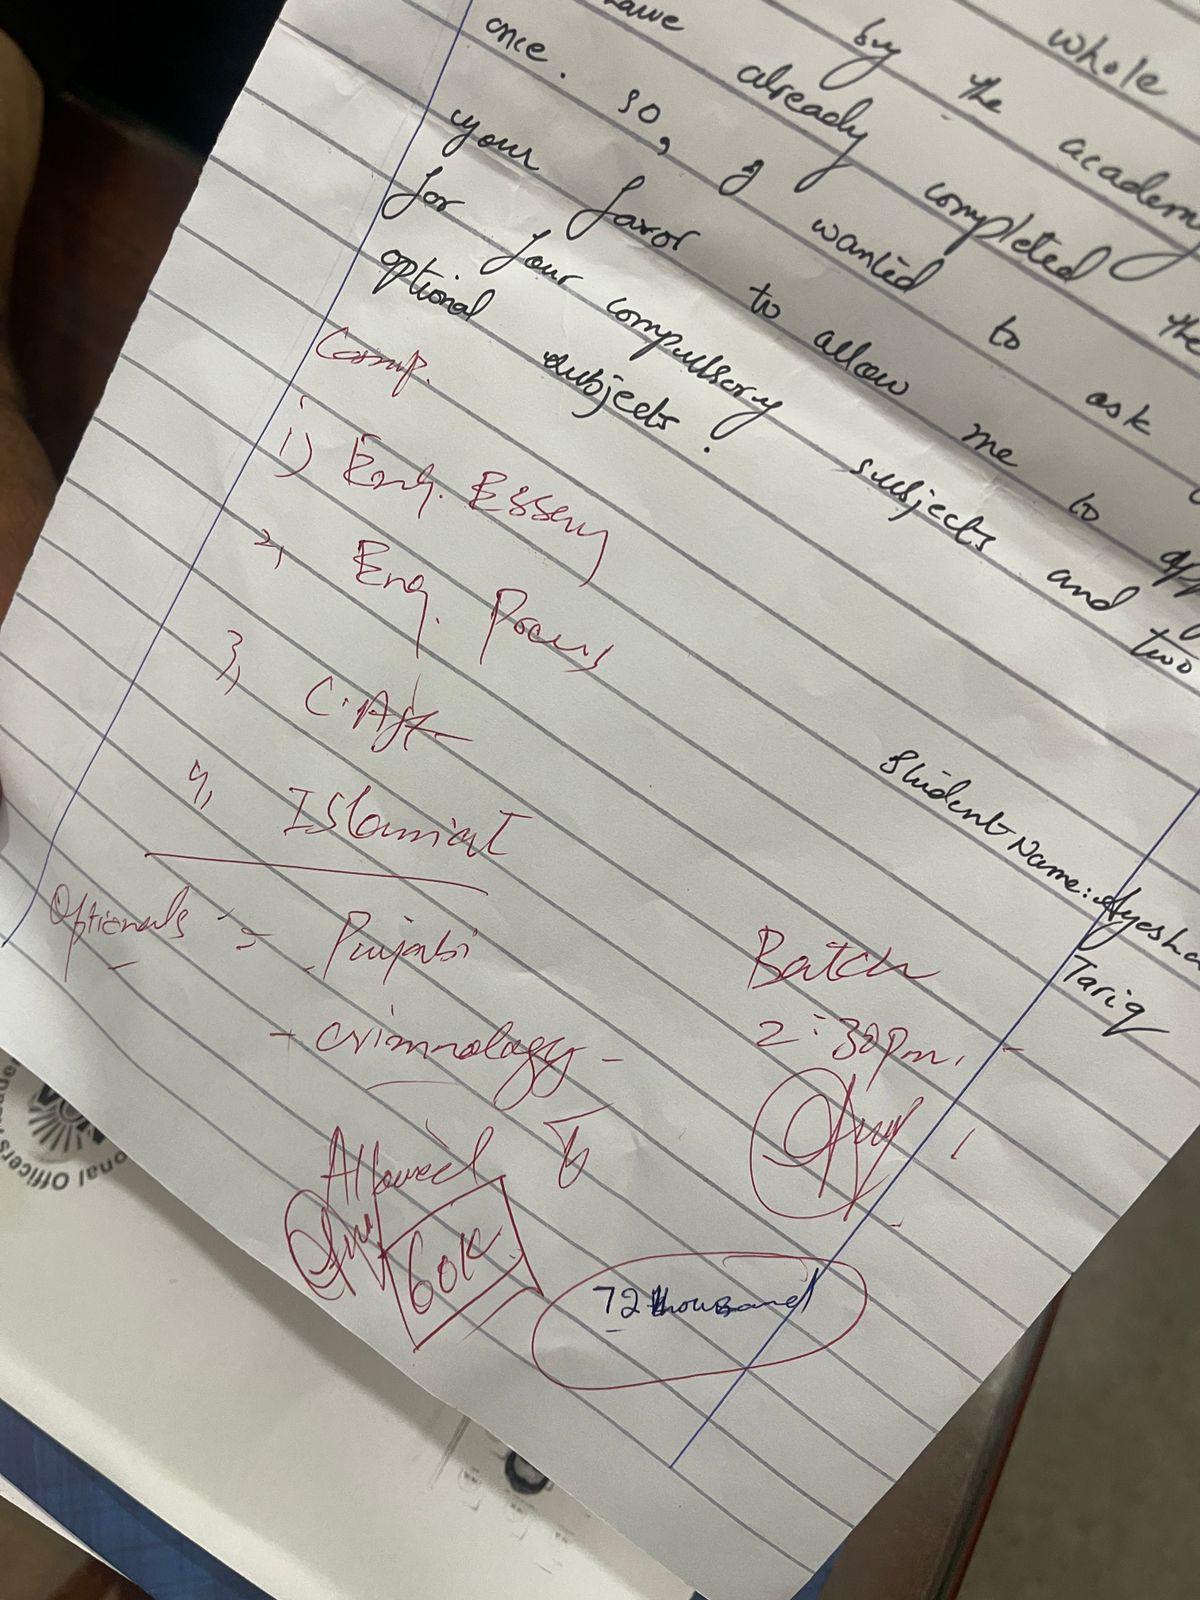 whole
have by the academy
once. already completed the
so, I wanted to ask
your favor to allow me to
for four compulsory subjects and two
optional subjects.
Comp.
1) Eng. Essay
2, Eng. Precis
3, C. Aff
4, Islamiat
Optionals :- Punjabi
- criminology -
Student Name: Ayesha
Tariq
Batch
2:30pm.
Allowed
60K
72 thousand
onal Officers